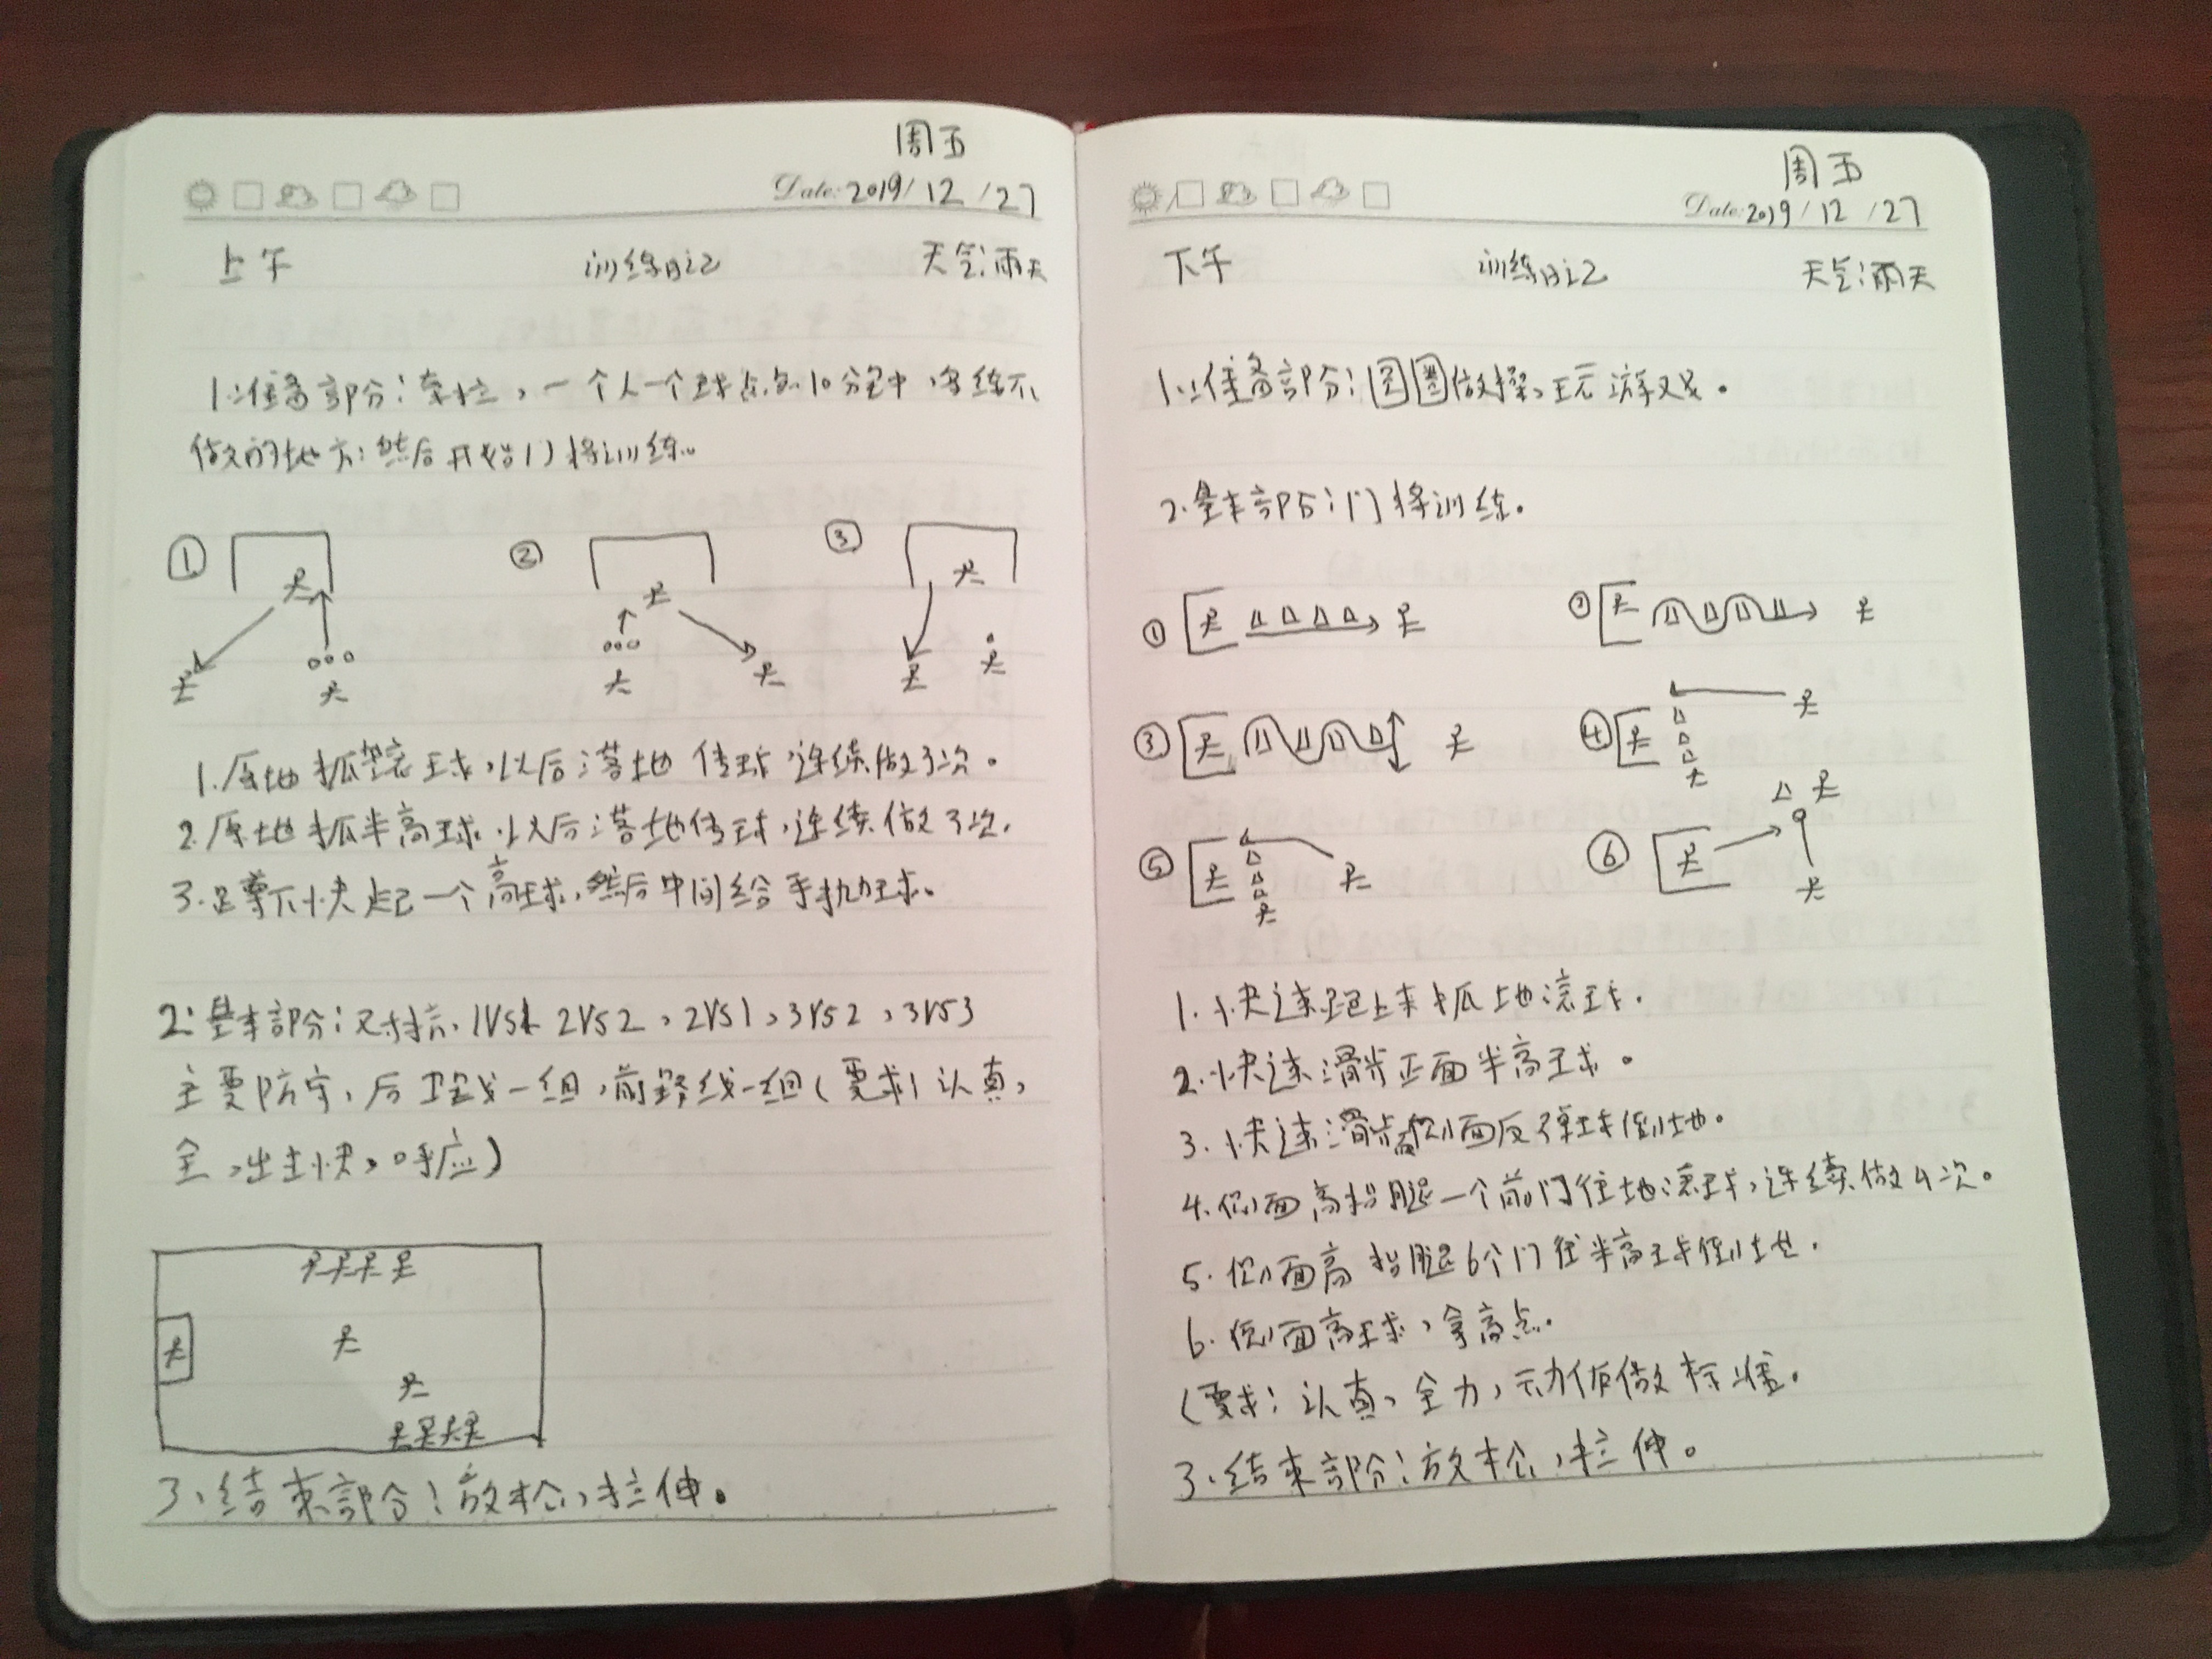 周五
Date: 2019/12/27
上午 训练日记 天气:雨天
1:准备部分:牵拉,一个人一个球点点10分钟,多练不
做的地方:然后开始门将训练。
① ② ③
1.原地抓滚球,以后落地传球,连续做3次。
2.原地抓半高球,以后落地传球,连续做3次.
3.蹲下快起一个高球,然后中间给手抛球。
2:基本部分:对抗,1VS1 2VS2,2VS1,3VS2,3VS3
主要防守,后卫线一组,前锋线一组(要求:认真,
全,出击快,呼应)
3、结束部分:放松,拉伸。
周五
Date: 2019/12/27
下午 训练日记 天气:雨天
1.:准备部分:圆圈做操,玩游戏。
2.基本部分:门将训练。
① ②
③ ④
⑤ ⑥
1.快速跑上来抓地滚球.
2.快速滑步正面半高球。
3.快速滑步侧面反弹球倒地。
4.侧面高抬腿一个前门往地滚球,连续做4次。
5.侧面高抬腿6个门往半高球倒地.
6.侧面高球,拿高点.
(要求:认真,全力,动作做标准.
3.结束部分:放松,拉伸。